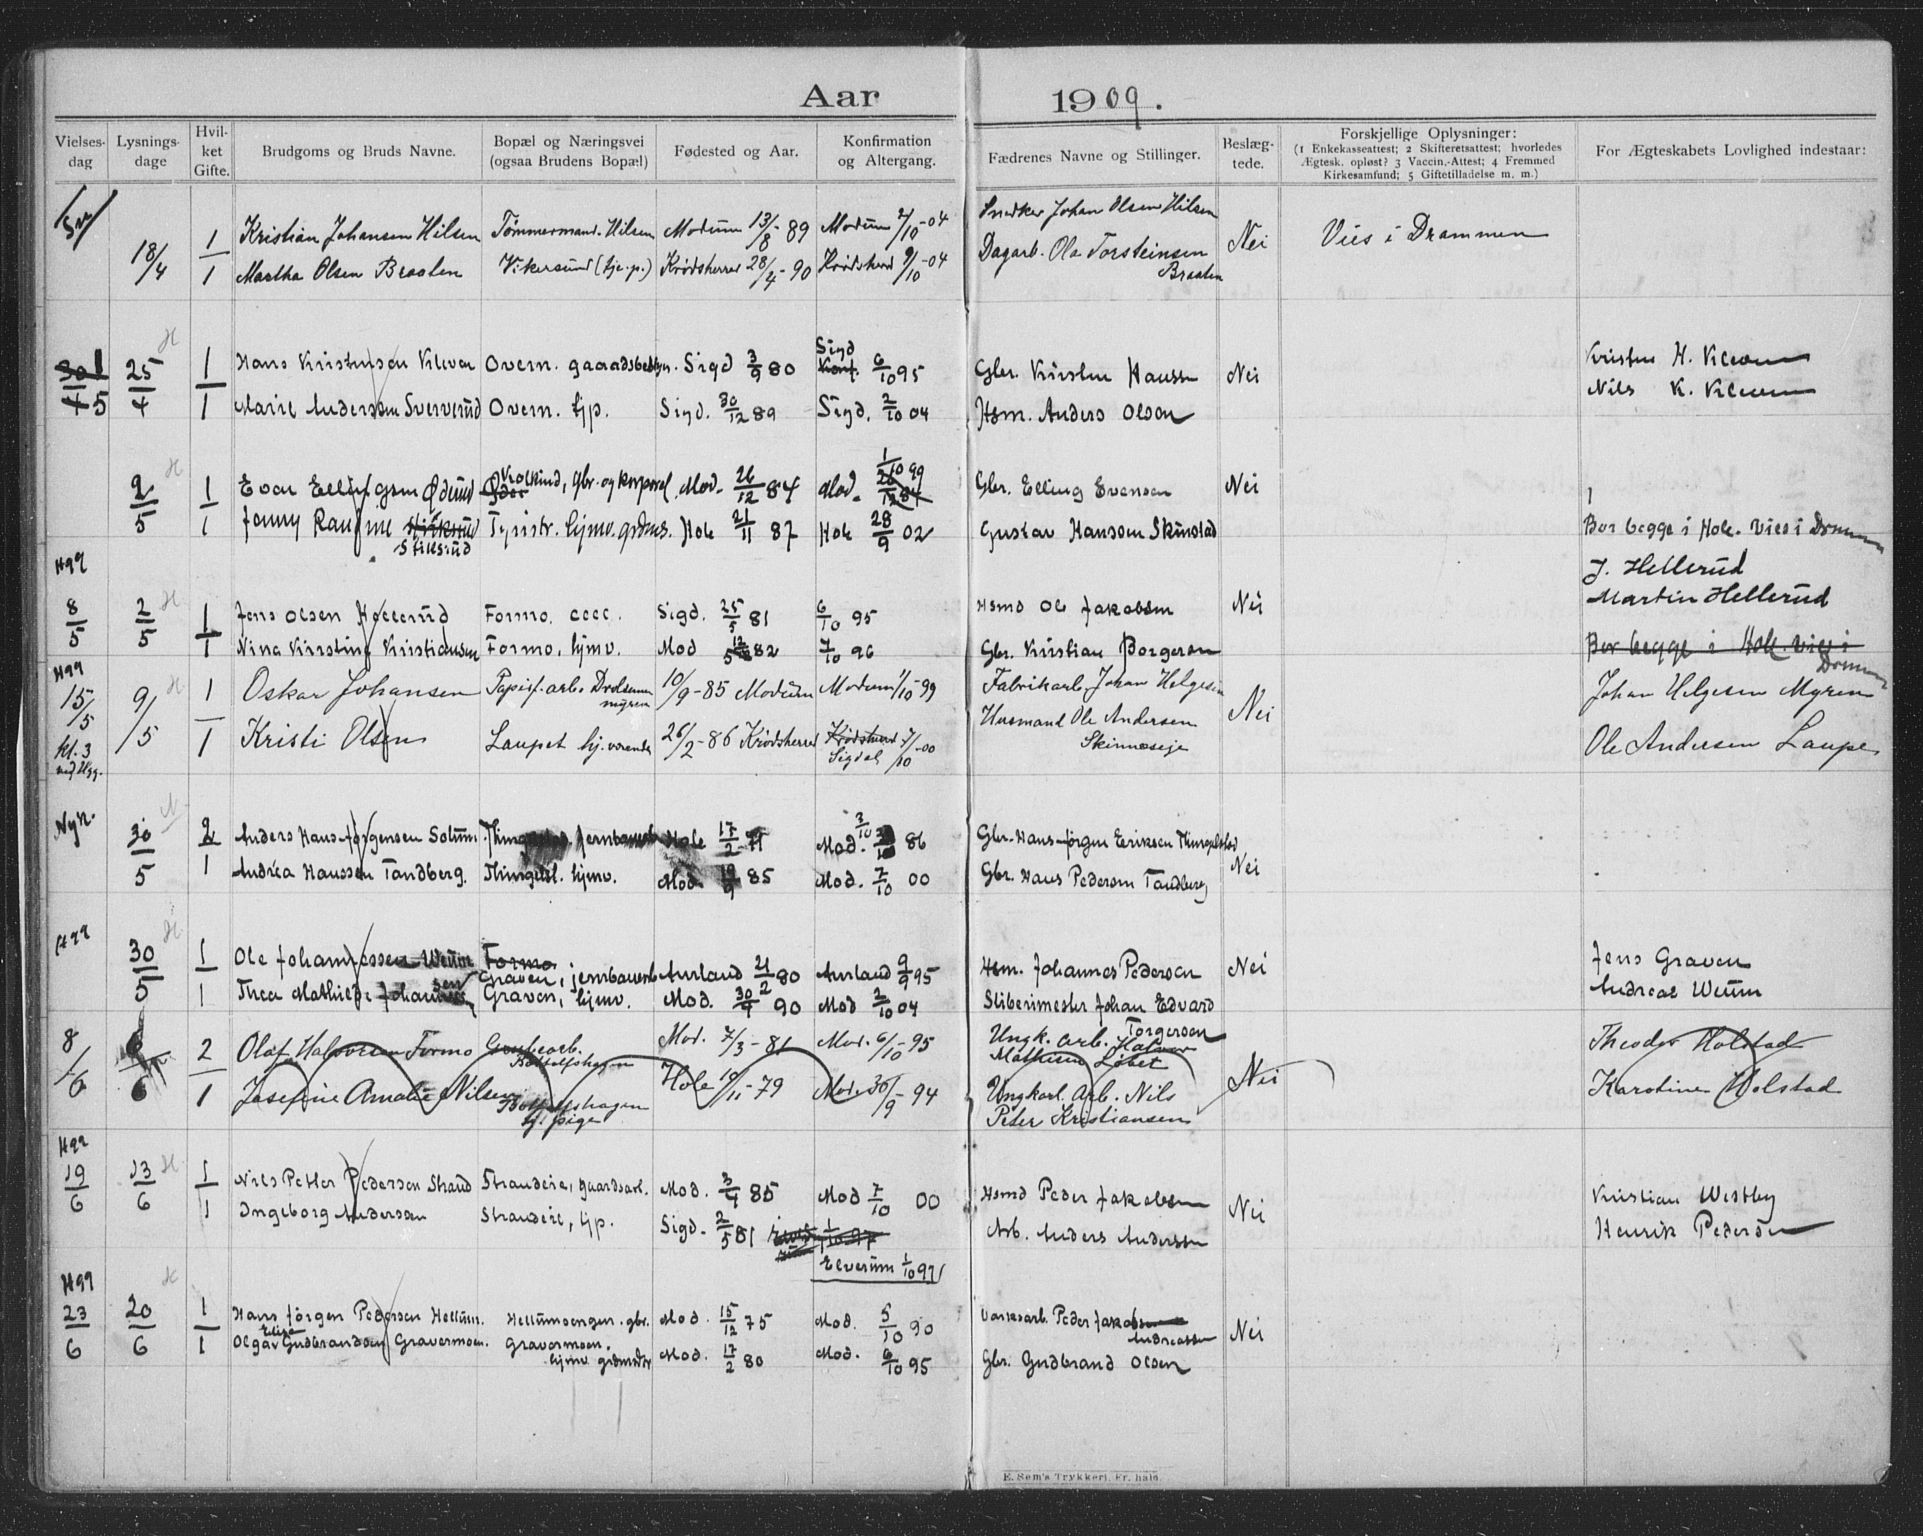 Aar 1909.
Vielses-dag
Lysnings-dage
Hvil-ket Gifte.
Brudgoms og Bruds Navne.
Bopæl og Næringsvei (ogsaa Brudens Bopæl)
Fødested og Aar.
Konfirmation og Altergang.
Fædrenes Navne og Stillinger.
Beslæg-tede.
Forskjellige Oplysninger:
(1 Enkekasseattest; 2 Skifteretsattest; hvorledes
Ægtesk. opløst? 3 Vaccin.-Attest; 4 Fremmed
Kirkesamfund; 5 Giftetilladelse m. m.)
For Ægteskabets Lovlighed indestaar:
18/4 1 Kristian Johansen Hilsen Tømmermand. Hilsen Modum 13/8 89 Modum 2/10-04 Snedker Johan Olsen Hilsen Nei Vies i Drammen
1 Martha Olsen Braaten Vikersund (tje.p.) Krødsherred 28/4-90 Krødsherred 9/10-04 Dagarb. Ola Torsteinsen Braaten
25/4 1 Hans Kristensen Kleven Overn. Sigd 3/9 80 Sigd 6/10 95 Gbr. Kristen Hansen Nei Kristen H. Kleven
1 Marie Anderssen Sververud Overn. tjp. Sigd. 30/12 89 Sigd. 2/10 04 Hsm. Anders Olsen Nils K. Kleven
2/5 1 Evar Ellingsen Øderud gbr. og korporal. Mod. 26/12 84 Mod. 1/10 99 26/12 84 Gbr. Elling Evensen Nei
1 Jenny Ragine Stiksrud Tyristr. hjmv. grdms. Hole 21/11 87 Hole 28/9 02 Gustav Hansen Skinstad Bor begge i Hole. Vies i Drmmn
Hgg
J. Hellerud
8/5 2/5 1 Jens Olsen Hellerud Formo, Sigd. 25/5 81 6/10 95 Hsmd Ole Jakobsen Nei Martin Hellerud
1 Nina Kirstine Kristiansen Formo, hjmv. Mod 12/5 82 7/10 96 Gbr. Kristian Borgersen Bor begge i Hole. Vies i Drmmn
Hgg
15/5 9/5 1 Oskar Johansen Papirf. arb. Drolsummyren 10/9-85 Modum Modum 1/10-99 Fabrikarb. Johan Helgesen Nei Johan Helgesen Myren
kl. 3
1 Kristi Olsen Laupet hj. værende 26/2-86 Krødsherred Krødsherred Sigdal 7/10-00 Husmand Ole Andersen Skinnæseje Ole Andersen Laupe
Nyk.
30/5 2 Anders Hans-Jørgensen Solum Hole 17/2 71 3/10 Mod. 86 Gbr. Hans-Jørgen Eriksen Thingelstad Nei
1 Andrea Hanssen Tandberg. Thingelst. hjmv. Mod. 19/9 85 Mod. 7/10 00 Gbr. Hans Pedersen Tandberg
Hgg
30/5 1 Ole Johannessen Weum Formo Graven, jernbanearb Aurland 21/2 80 Aurland 9/9 95 Hsm. Johannes Pedersen Nei Jens Graven
1 Thea Mathilde Johannessen Graven, hjmv. Mod. 30/9 90 Mod 2/10 04 Sliberimester Johan Edvard Torgersen Andreas Weum
8/6 6/6 2 Olaf Halvorsen Formo Grubearb. Mod. 7/3-81 Mod. 6/10-95 Ungk. arb. Halvor Mathisen Løbet Nei Theodor Holstad
1 Josefine Amalie Nilsen tj. pige Hole 10/11-79 Mod. 30/9-94 Ungkarl. Arb. Nils Peter Kristiansen Karoline Holstad
Hgg
19/6 13/6 1 Nils Petter Pedersen Strand Strandeie, gaardsarb. Mod. 3/4 85 Mod 7/10 00 Hsmd Peder Jakobsen Nei Kristian Westby
1 Ingeborg Anderssen Strandeie, tjp. Sigd. 2/5 81 1/10 97 Arb. Anders Anderssen Henrik Pedersen
Elverum 1/10 97
Hgg
23/6 20/6 1 Hans Jørgen Pedersen Hellum. Hellumsengen. gbr. Mod. 15/12 75 Mod. 5/10 90 Værksarb. Peder Jakobsen Andreassen Nei
1 Olga Elise Gudbrandsen Gravermoen. Gravermoen. hjmv. Mod. 17/2 80 Mod. 6/10 95 Gbr. Gudbrand Olsen
E. Sem's Trykkeri, Fr. hald.